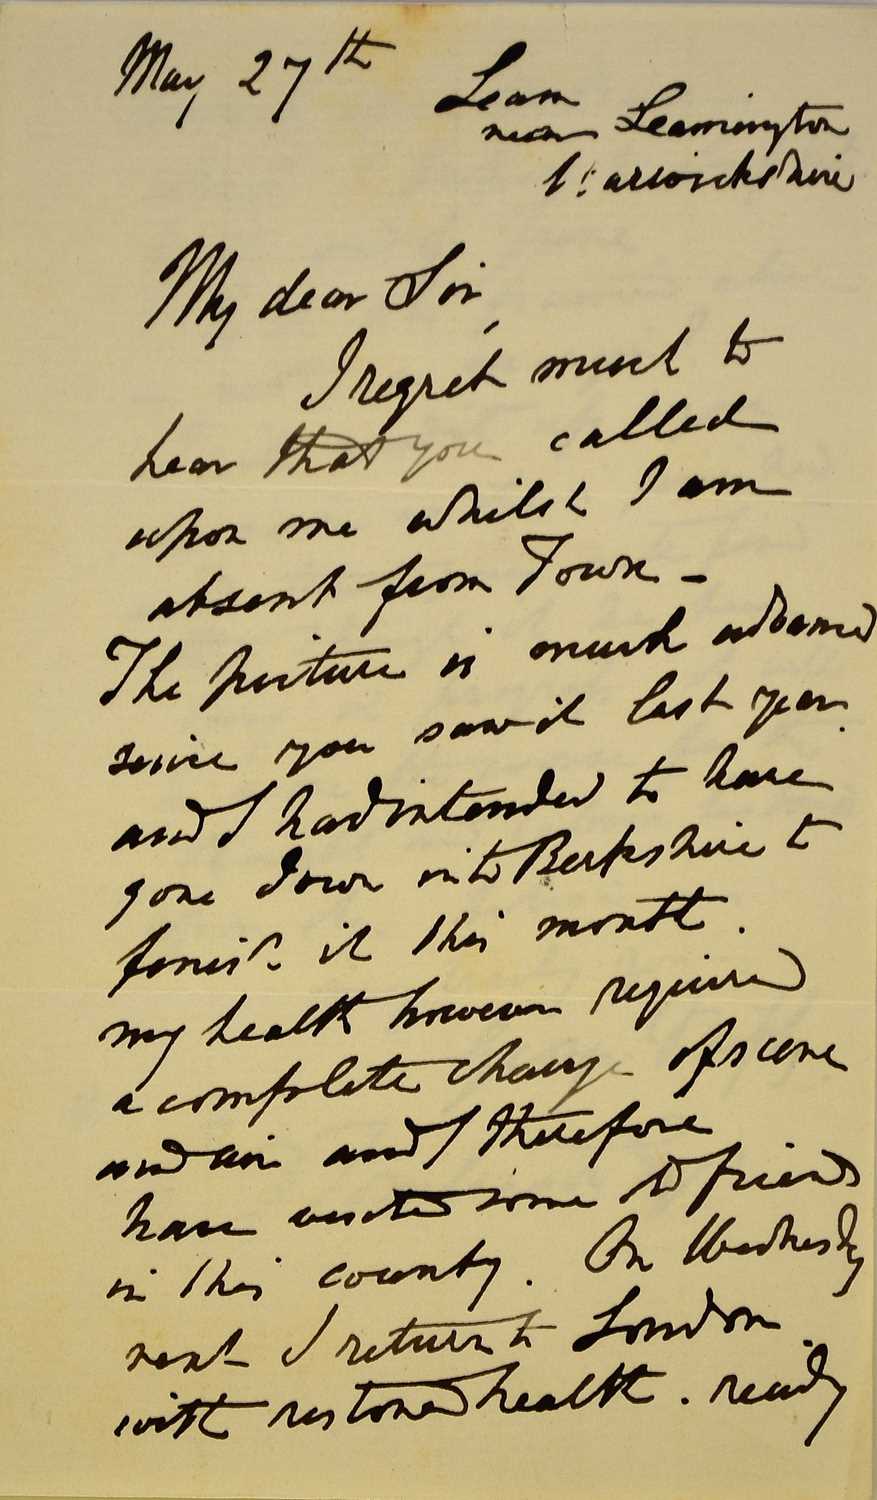 May 27th
Leam
near Leamington
Warwickshire
My dear Sir,
I regret much to
hear that you called
upon me whilst I am
absent from Town -
The picture is much advanced
since you saw it last year
and I had intended to have
gone down into Berkshire to
finish it this month.
my health however required
a complete change of scene
and air and I therefore
have visited some old friends
in this county. On Wednesday
next I return to London
with restored health. ready